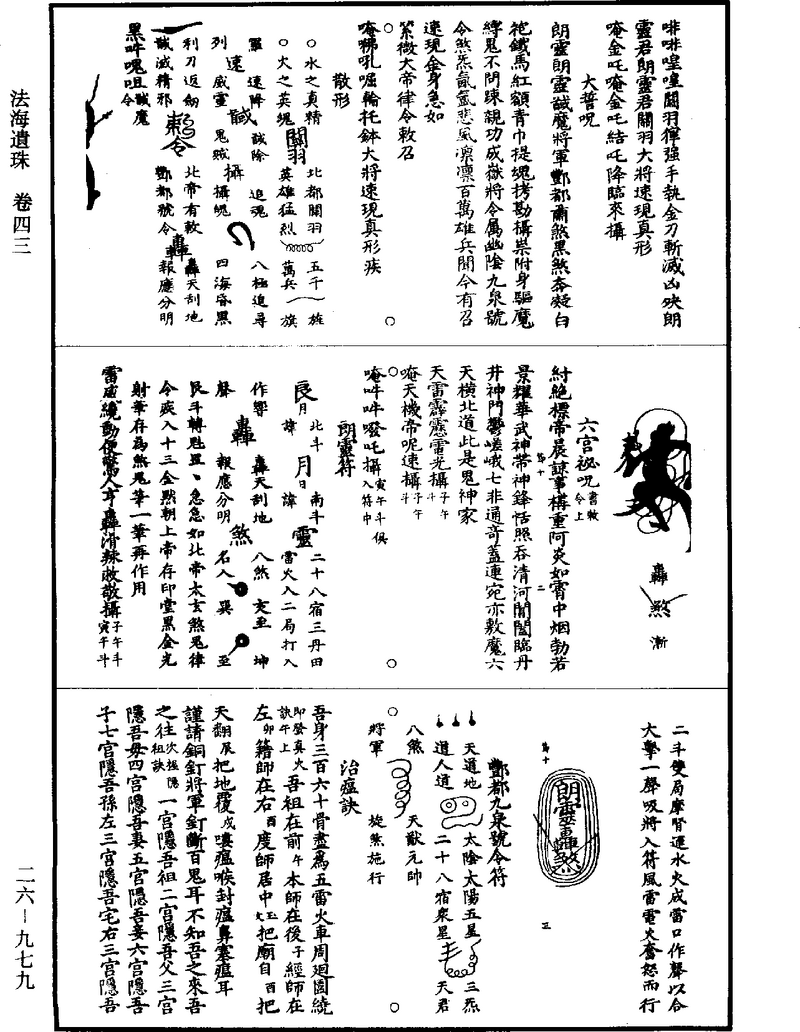 啡啡喤喤關羽揮强手執金刀斬滅凶殃朗
靈君朗靈君關羽大將速現真形
唵金吒唵金吒結吒降臨來攝
大誓呪
朗靈朗靈馘魔將軍酆都爾煞黑煞奔凝白
袍鐵馬紅額青巾提魂拷勘攝祟附身驅魔
縛鬼不問踈親功成嶽將令属幽陰九泉號
令煞炁氤氳悲風凛凛百萬雄兵關令有召
速現金身急如
紫微大帝律令敕召
唵狒吼嘔輪托鉢大將速現真形疾
散形
水之真精
北都關羽
五千
旌
火之英魂
英雄猛烈
萬兵
旗
關羽
速降
馘除
追魂
八極追尋
列
威靈
鬼賊
攝魄
四海昏黑
速
馘
攝
利刀返劒
北帝有敕
轟天刮地
馘滅精邪
酆都號令
報應分明
轟
黑吽魄咀馘魔
轟
煞
漸
六宫祕呪
書敕令上
紂絶標帝晨諒事構重阿炎如霄中烟勃若
景耀華武神帶神鋒恬照吞清河闓闔臨丹
井神門鬱嵯峨七非通奇蓋連宛亦敷魔六
天横北道此是鬼神家
天雷霹靂電光攝子午斗
唵天機帝呢速攝子午斗
唵吽吽發吒攝寅午斗俱入符中
朗靈符
月
北斗
月
南斗
二十八宿三丹田
諱
日
諱
雷火入二局打入
靈
作響
轟天刮地
八煞
交至
坤
聲
轟
報應分明
煞
名入
巽
至
艮斗轉魁罡急急如北帝太玄煞鬼律
令疾入十三金㸃朝上帝存印堂黑金光
射筆存為煞鬼筆一筆再作用
二斗雙局摩腎運水火成雷口作聲以合
大擊一聲吸將入符風雷電火奮怒而行
朗靈轟煞
酆都九泉號令符
天道地
太陰太陽五星
三炁
道人道
二十八宿衆星
天君
八煞
天猷元帥
將軍
旋煞施行
治瘟訣
吾身三百六十骨盡爲五雷火車周迴圍繞
即發真火訣午上吾祖在前午本師在後子經師在
左卯籍師在右酉度師居中玉文把廟自酉把
天翻辰把地覆戌嘆瘟喉封瘟鼻塞瘟耳
謹請銅釘將軍釘斷百鬼耳不知吾之來吾
之往次祖隱祖訣一宫隱吾祖二宫隱吾父三宫
隱吾母四宫隱吾妻五宫隱吾妾六宫隱吾
子七宫隱吾孫左三宫隱吾宅右三宫隱吾
法海遺珠 卷四三
二六－九七九